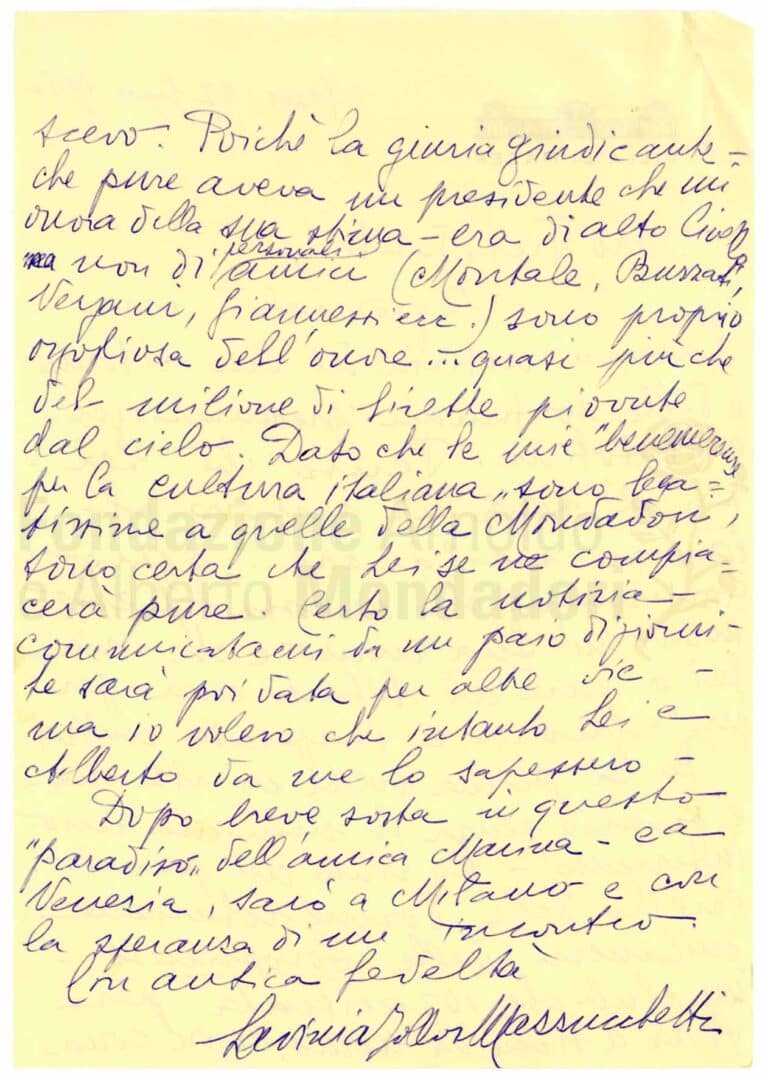 scevo. Poichè la giuria giudicante –
che pure aveva un presidente che mi
onora della sua stima – era di alto livello
ma non di personali amici (Montale, Buzzati,
Vergani, Giannessi ecc.) sono proprio
orgogliosa dell'onore ... quasi più che
del milione di lirette piovute
dal cielo. Dato che le mie "benemerenze
per la cultura italiana" sono lega=
tissime a quelle della Mondadori,
sono certa che Lei se ne compia=
cerà pure. Certo la notizia –
comunicatami da un paio di giorni –
le sarà poi data per altre vie –
ma io volevo che intanto Lei e
Alberto da me lo sapessero –
Dopo breve sosta in questo
"paradiso" dell'amica Marina – ca
Venezia, sarò a Milano e con
la speranza di un incontro.
Con antica fedeltà
Lavinia Jollos Mazzucchetti
Fondazione Arnoldo
e Alberto Mondadori